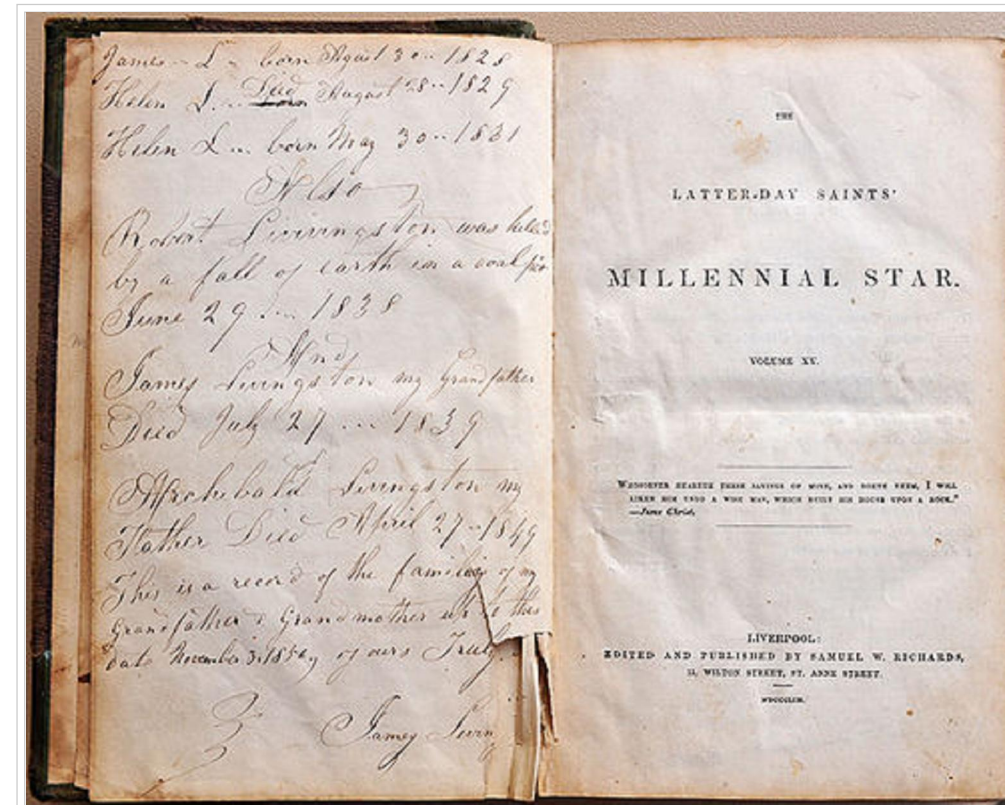 James L born August 30 1828
Helen L. Died August 28 1829
Helen L born May 30 1831
Also
Robert Livingston was killed
by a fall of earth in a coal
June 29 1838
And
James Livingston my Grandfather
Died July 27 1839
Archebald Livingston my
Father Died April 27 1849
This is a record of the families of my
Grandfather & Grandmother up to this
date November 3 yours Truly
James
THE
LATTER-DAY SAINTS'
MILLENNIAL STAR.
VOLUME XV.
"WHOSOEVER HEARETH THESE SAYINGS OF MINE, AND DOETH THEM, I WILL
LIKEN HIM UNTO A WISE MAN, WHICH BUILT HIS HOUSE UPON A ROCK."
—Jesus Christ.
LIVERPOOL:
EDITED AND PUBLISHED BY SAMUEL W. RICHARDS,
15, WILTON STREET, ST. ANNE STREET.
MDCCCLIII.